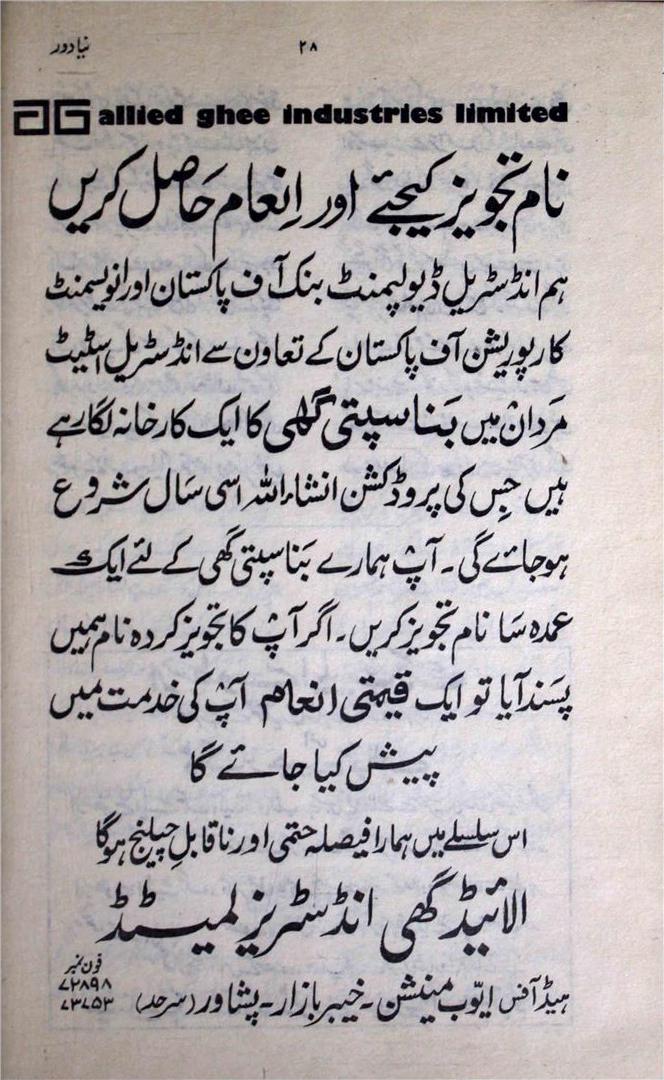 ۲۸
نیا دور
allied ghee industries limited
نام تجویز کیجئے اور اِنعام حَاصل کریں
ہم انڈسٹریل ڈیولپمنٹ بنک آف پاکستان اور انویسمنٹ
کارپوریشن آف پاکستان کے تعاون سے انڈسٹریل اسٹیٹ
مَردان میں بَناسپتی گھی کا ایک کارخانہ لگا رہے
ہیں جِس کی پروڈکشن انشاءاللہ اسی سَال شروع
ہوجائے گی۔ آپ ہمارے بَناسپتی گھی کے لئے ایک
عمدہ سَا نام تجویز کریں۔ اگر آپ کا تجویز کردہ نام ہمیں
پسَند آیا تو ایک قیمتی انعام آپ کی خدمت میں
پیش کیا جائے گا
اس سلسلے میں ہمارا فیصلہ حتمی اور ناقابلِ چیلنج ہوگا
الائیڈ گھی انڈسٹریز لمیٹڈ
فون نمبر
۷۲۸۹۸
۷۳۷۵۳
ہیڈ آفس ایّوب مینشن۔ خیبر بازار۔ پشاور (سرحد)